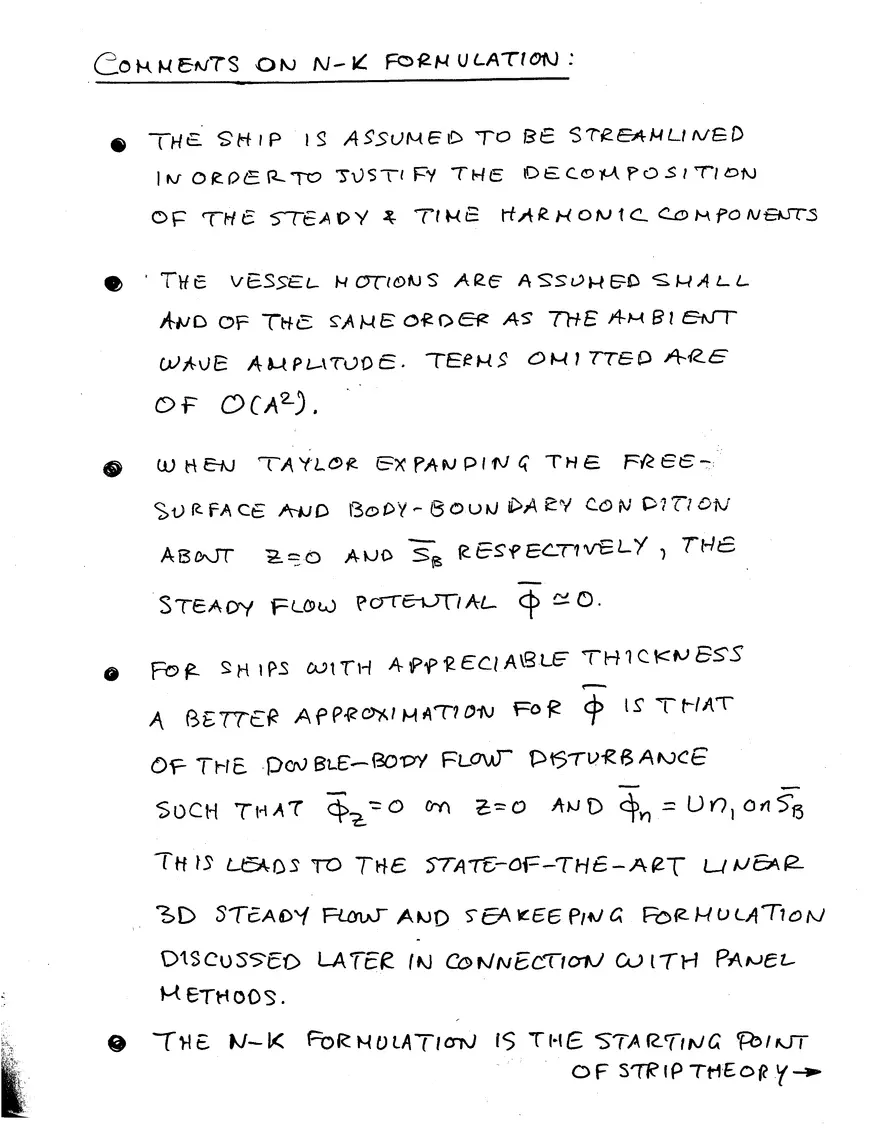 COMMENTS ON N-K FORMULATION:
● THE SHIP IS ASSUMED TO BE STREAMLINED
IN ORDER TO JUSTIFY THE DECOMPOSITION
OF THE STEADY & TIME HARMONIC COMPONENTS
● THE VESSEL MOTIONS ARE ASSUMED SMALL
AND OF THE SAME ORDER AS THE AMBIENT
WAVE AMPLITUDE. TERMS OMITTED ARE
OF O(A²).
● WHEN TAYLOR EXPANDING THE FREE-
SURFACE AND BODY-BOUNDARY CONDITION
ABOUT Z=0 AND S̅_B RESPECTIVELY, THE
STEADY FLOW POTENTIAL ϕ̅ ≃ 0.
● FOR SHIPS WITH APPRECIABLE THICKNESS
A BETTER APPROXIMATION FOR ϕ̅ IS THAT
OF THE DOUBLE-BODY FLOW DISTURBANCE
SUCH THAT ϕ̅_z = 0 on Z=0 AND ϕ̅_n = Un₁ on S̅_B
THIS LEADS TO THE STATE-OF-THE-ART LINEAR
3D STEADY FLOW AND SEAKEEPING FORMULATION
DISCUSSED LATER IN CONNECTION WITH PANEL
METHODS.
● THE N-K FORMULATION IS THE STARTING POINT
OF STRIP THEORY →